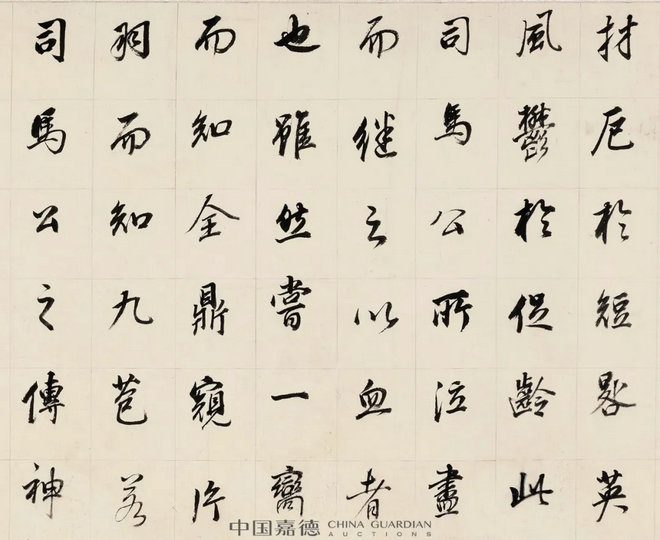 材厄於短晷英
風鬱於促齡此
司馬公所泣盡
而继之以血者
也雖然嘗一臠
而知全鼎窺片
羽而知九苞若
司馬公之傳神
中国嘉德 CHINA GUARDIAN
AUCTIONS